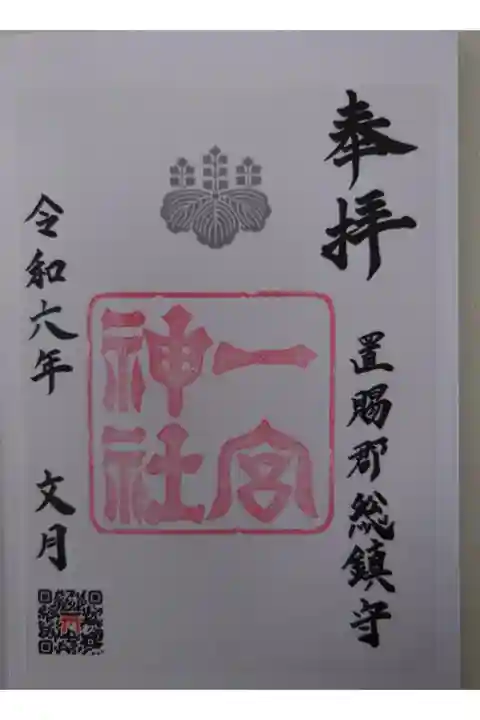 奉拝
置賜郡総鎮守
一宮
神社
令和六年 文月